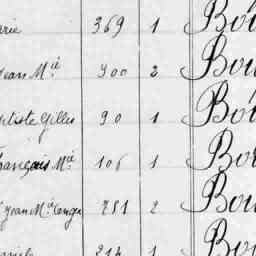 arie 369 1 Bou
Jean M.ie 300 2 Bou
ptiste Gilles 90 1 Bou
françois M.ie 106 1 Bou
Jean M.ie 251 2 Bou
214 1 Bou